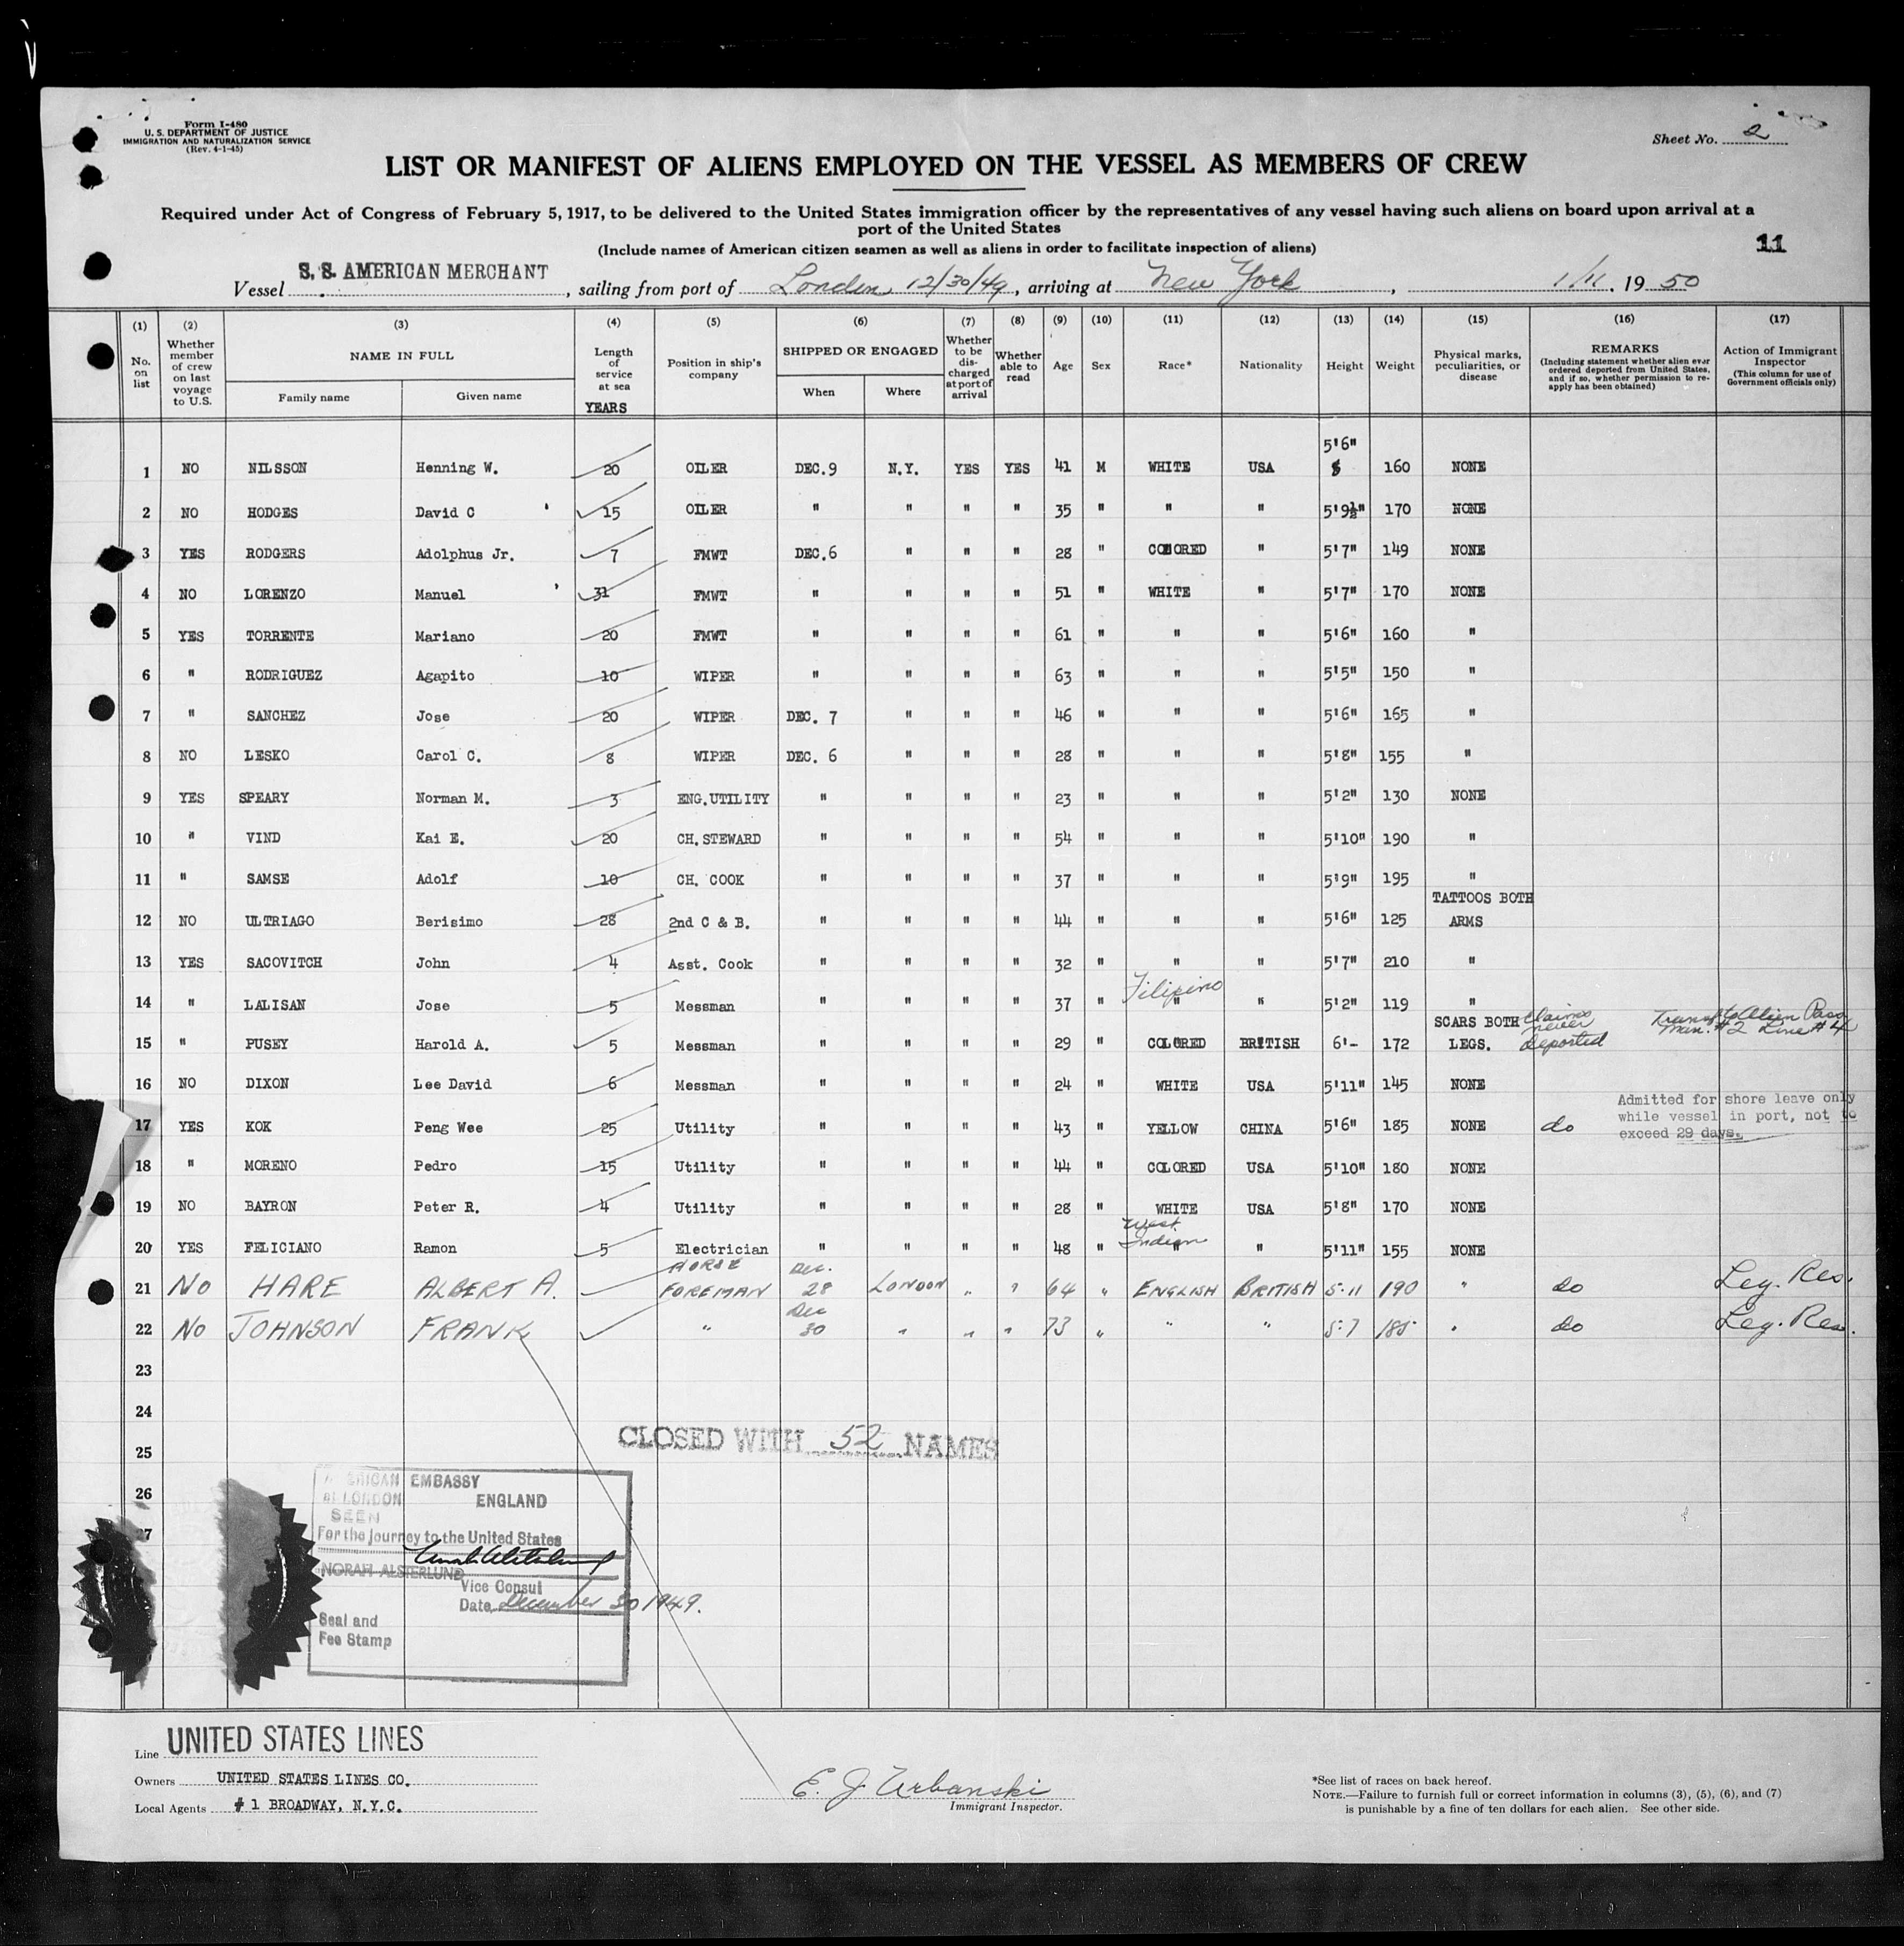 Form I-480
U. S. DEPARTMENT OF JUSTICE
IMMIGRATION AND NATURALIZATION SERVICE
(Rev. 4-1-45)
Sheet No. 2
LIST OR MANIFEST OF ALIENS EMPLOYED ON THE VESSEL AS MEMBERS OF CREW
Required under Act of Congress of February 5, 1917, to be delivered to the United States immigration officer by the representatives of any vessel having such aliens on board upon arrival at a
port of the United States
(Include names of American citizen seamen as well as aliens in order to facilitate inspection of aliens)
11
Vessel S. S. AMERICAN MERCHANT, sailing from port of London 12/30/49, arriving at New York, 1/11, 19 50
(1) (2) (3) (4) (5) (6) (7) (8) (9) (10) (11) (12) (13) (14) (15) (16) (17)
No. on list
Whether member of crew on last voyage to U.S.
NAME IN FULL
Family name
Given name
Length of service at sea
YEARS
Position in ship's company
SHIPPED OR ENGAGED
When
Where
Whether to be discharged at port of arrival
Whether able to read
Age
Sex
Race*
Nationality
Height
Weight
Physical marks, peculiarities, or disease
REMARKS
(Including statement whether alien ever ordered deported from United States, and if so, whether permission to reapply has been obtained)
Action of Immigrant Inspector
(This column for use of Government officials only)
1 NO NILSSON Henning W. 20 OILER DEC.9 N.Y. YES YES 41 M WHITE USA 5'6" 160 NONE
2 NO HODGES David C 15 OILER " " " " 35 " " " 5'9½" 170 NONE
3 YES RODGERS Adolphus Jr. 7 FMWT DEC.6 " " " 28 " COLORED " 5'7" 149 NONE
4 NO LORENZO Manuel 31 FMWT " " " " 51 " WHITE " 5'7" 170 NONE
5 YES TORRENTE Mariano 20 FMWT " " " " 61 " " " 5'6" 160 "
6 " RODRIGUEZ Agapito 10 WIPER " " " " 63 " " " 5'5" 150 "
7 " SANCHEZ Jose 20 WIPER DEC. 7 " " " 46 " " " 5'6" 165 "
8 NO LESKO Carol C. 8 WIPER DEC. 6 " " " 28 " " " 5'8" 155 "
9 YES SPEARY Norman M. 3 ENG.UTILITY " " " " 23 " " " 5'2" 130 NONE
10 " VIND Kai E. 20 CH.STEWARD " " " " 54 " " " 5'10" 190 "
11 " SAMSE Adolf 10 CH. COOK " " " " 37 " " " 5'9" 195 "
12 NO ULTRIAGO Berisimo 28 2nd C & B. " " " " 44 " " " 5'6" 125 TATTOOS BOTH ARMS
13 YES SACOVITCH John 4 Asst. Cook " " " " 32 " " " 5'7" 210 "
14 " LALISAN Jose 5 Messman " " " " 37 " Filipino " " 5'2" 119 "
15 " PUSEY Harold A. 5 Messman " " " " 29 " COLORED BRITISH 6'- 172 SCARS BOTH LEGS. Claims never deported Transf to Alien Pass Man. #2 Line #4
16 NO DIXON Lee David 6 Messman " " " " 24 " WHITE USA 5'11" 145 NONE
17 YES KOK Peng Wee 25 Utility " " " " 43 " YELLOW CHINA 5'6" 185 NONE do Admitted for shore leave only while vessel in port, not to exceed 29 days.
18 " MORENO Pedro 15 Utility " " " " 44 " COLORED USA 5'10" 180 NONE
19 NO BAYRON Peter R. 4 Utility " " " " 28 " WHITE USA 5'8" 170 NONE
20 YES FELICIANO Ramon 5 Electrician " " " " 48 " West Indian " " 5'11" 155 NONE
21 NO HARE ALBERT A. HORSE FOREMAN Dec. 28 LONDON " " 64 " ENGLISH BRITISH 5-11 190 " do Leg. Res.
22 NO JOHNSON FRANK " Dec 30 " " " 73 " " " 5-7 185 " do Leg. Res.
23
24
CLOSED WITH 52 NAMES
25
26
AMERICAN EMBASSY
at LONDON ENGLAND
SEEN
For the journey to the United States
NORAH ALSTERLUND
Vice Consul
Date December 30 1949.
Seal and
Fee Stamp
Line UNITED STATES LINES
Owners UNITED STATES LINES CO.
Local Agents # 1 BROADWAY, N.Y.C.
E. J Urbanski
Immigrant Inspector.
*See list of races on back hereof.
NOTE.—Failure to furnish full or correct information in columns (3), (5), (6), and (7)
is punishable by a fine of ten dollars for each alien. See other side.